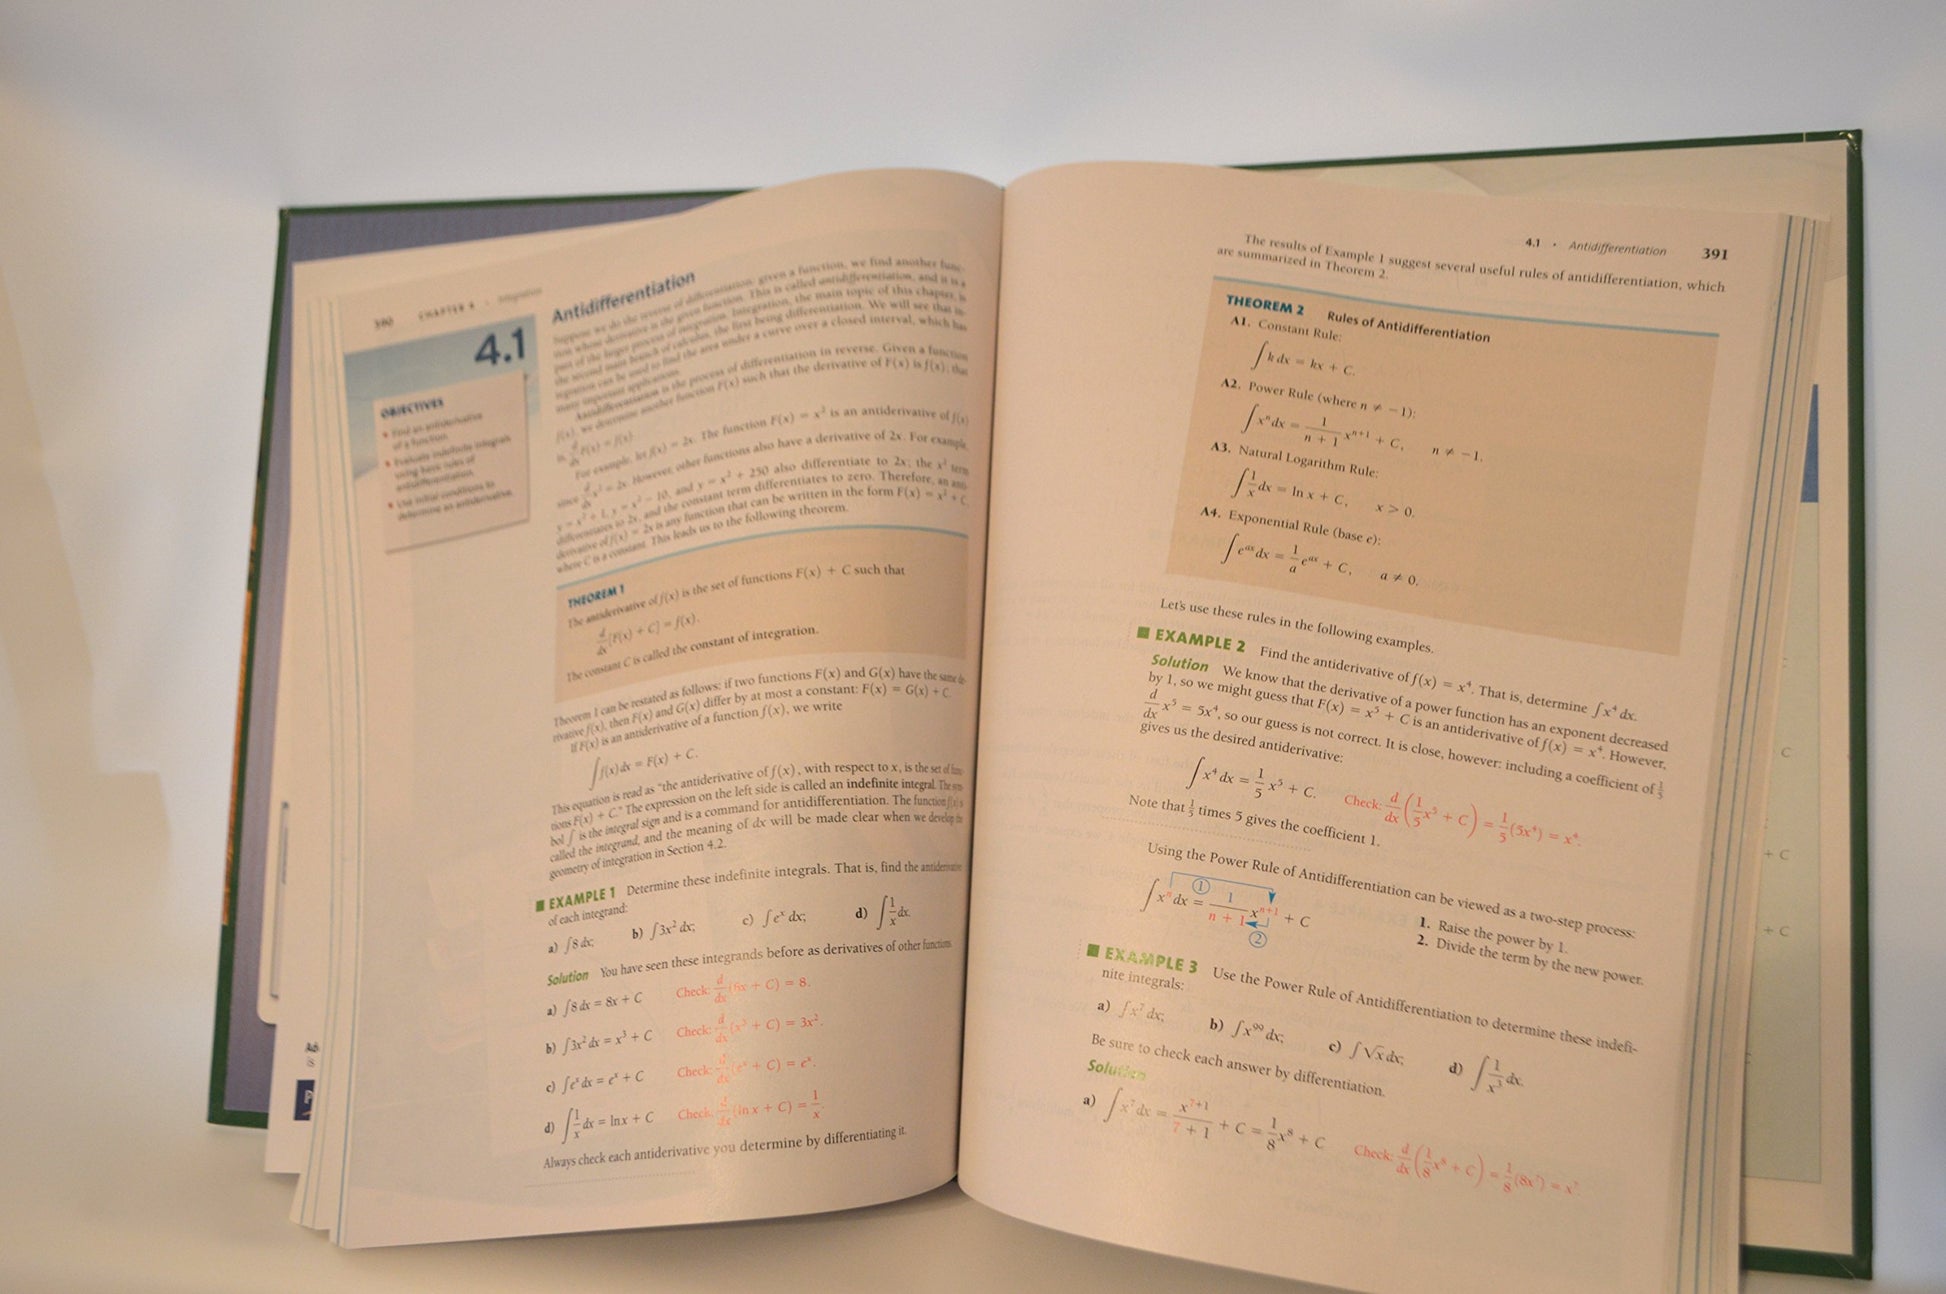 390 CHAPTER 4 • Integration
4.1
OBJECTIVES
• Find an antiderivative
of a function.
• Evaluate indefinite integrals
using basic rules of
antidifferentiation.
• Use initial conditions to
determine an antiderivative.
Antidifferentiation
Suppose we do the reverse of differentiation: given a function, we find another func-
tion whose derivative is the given function. This is called antidifferentiation, and it is a
part of the larger process of integration. Integration, the main topic of this chapter, is
the second main branch of calculus, the first being differentiation. We will see that in-
tegration can be used to find the area under a curve over a closed interval, which has
many important applications.
Antidifferentiation is the process of differentiation in reverse. Given a function
f(x), we determine another function F(x) such that the derivative of F(x) is f(x); that
is, d/dx F(x) = f(x).
For example, let f(x) = 2x. The function F(x) = x² is an antiderivative of f(x)
since d/dx x² = 2x. However, other functions also have a derivative of 2x. For example,
y = x² + 1, y = x² − 10, and y = x² + 250 also differentiate to 2x; the x² term
differentiates to 2x, and the constant term differentiates to zero. Therefore, an anti-
derivative of f(x) = 2x is any function that can be written in the form F(x) = x² + C,
where C is a constant. This leads us to the following theorem.
THEOREM 1
The antiderivative of f(x) is the set of functions F(x) + C such that
d/dx [F(x) + C] = f(x).
The constant C is called the constant of integration.
Theorem 1 can be restated as follows: if two functions F(x) and G(x) have the same de-
rivative f(x), then F(x) and G(x) differ by at most a constant: F(x) = G(x) + C.
If F(x) is an antiderivative of a function f(x), we write
∫ f(x) dx = F(x) + C.
This equation is read as "the antiderivative of f(x), with respect to x, is the set of func-
tions F(x) + C." The expression on the left side is called an indefinite integral. The sym-
bol ∫ is the integral sign and is a command for antidifferentiation. The function f(x) is
called the integrand, and the meaning of dx will be made clear when we develop the
geometry of integration in Section 4.2.
EXAMPLE 1 Determine these indefinite integrals. That is, find the antiderivative
of each integrand:
a) ∫8 dx; b) ∫3x² dx; c) ∫eˣ dx; d) ∫1/x dx.
Solution You have seen these integrands before as derivatives of other functions.
a) ∫8 dx = 8x + C Check: d/dx (8x + C) = 8.
b) ∫3x² dx = x³ + C Check: d/dx (x³ + C) = 3x².
c) ∫eˣ dx = eˣ + C Check: d/dx (eˣ + C) = eˣ.
d) ∫1/x dx = ln x + C Check: d/dx (ln x + C) = 1/x.
Always check each antiderivative you determine by differentiating it.
4.1 • Antidifferentiation 391
The results of Example 1 suggest several useful rules of antidifferentiation, which
are summarized in Theorem 2.
THEOREM 2 Rules of Antidifferentiation
A1. Constant Rule:
∫k dx = kx + C.
A2. Power Rule (where n ≠ −1):
∫xⁿ dx = 1/(n + 1) xⁿ⁺¹ + C, n ≠ −1.
A3. Natural Logarithm Rule:
∫1/x dx = ln x + C, x > 0.
A4. Exponential Rule (base e):
∫eᵃˣ dx = 1/a eᵃˣ + C, a ≠ 0.
Let's use these rules in the following examples.
EXAMPLE 2 Find the antiderivative of f(x) = x⁴. That is, determine ∫x⁴ dx.
Solution We know that the derivative of a power function has an exponent decreased
by 1, so we might guess that F(x) = x⁵ + C is an antiderivative of f(x) = x⁴. However,
d/dx x⁵ = 5x⁴, so our guess is not correct. It is close, however: including a coefficient of 1/5
gives us the desired antiderivative:
∫x⁴ dx = 1/5 x⁵ + C. Check: d/dx (1/5 x⁵ + C) = 1/5 (5x⁴) = x⁴.
Note that 1/5 times 5 gives the coefficient 1.
Using the Power Rule of Antidifferentiation can be viewed as a two-step process:
∫xⁿ dx = 1/(n + 1) xⁿ⁺¹ + C
① ②
1. Raise the power by 1.
2. Divide the term by the new power.
EXAMPLE 3 Use the Power Rule of Antidifferentiation to determine these indefi-
nite integrals:
a) ∫x⁷ dx; b) ∫x⁹⁹ dx; c) ∫√x dx; d) ∫1/x³ dx.
Be sure to check each answer by differentiation.
Solution
a) ∫x⁷ dx = x⁷⁺¹/(7 + 1) + C = 1/8 x⁸ + C Check: d/dx (1/8 x⁸ + C) = 1/8 (8x⁷) = x⁷.
C
+ C
+ C